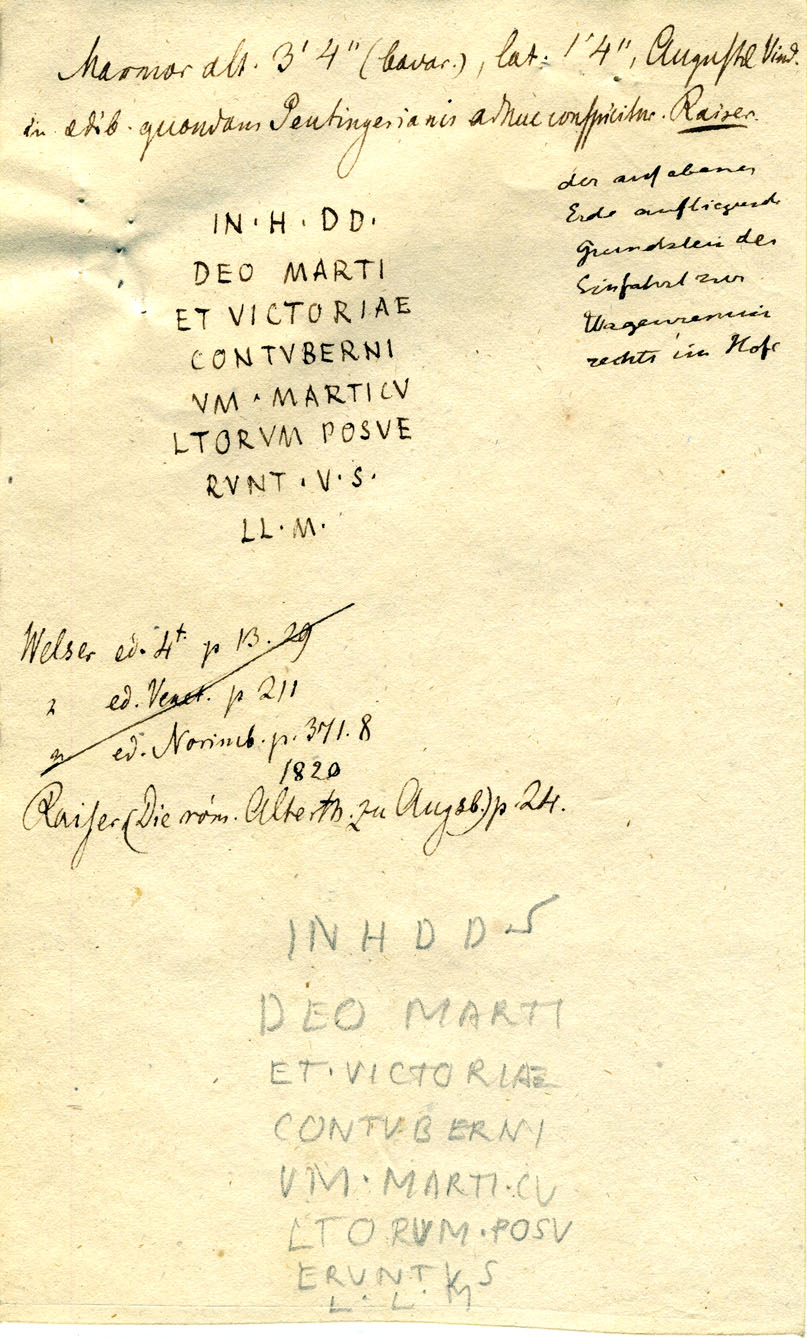 Marmor alt. 3' 4" (bavar.), lat. 1' 4", Augustæ Vind.
in ædib. quondam Peutingerianis adhuc conspicitur. Raiser.
der auf ebener
Erde aufliegende
Grundstein der
Einfahrt zur
Wagenremise
rechts im Hofe
IN · H · D D ·
DEO MARTI
ET VICTORIAE
CONTVBERNI
VM · MARTICV
LTORVM POSVE
RVNT · V · S ·
LL · M ·
Welser ed. 4t. p 13. 29
" ed. Venet. p 211
" ed. Norimb. p. 371. 8
1820
Raiser (Die röm. Alterth. zu Augsb.) p 24.
IN H D D
DEO MARTI
ET · VICTORIAE
CONTVBERNI
VM · MARTI · CV
LTORVM · POSV
ERVNT V S
L · L · M